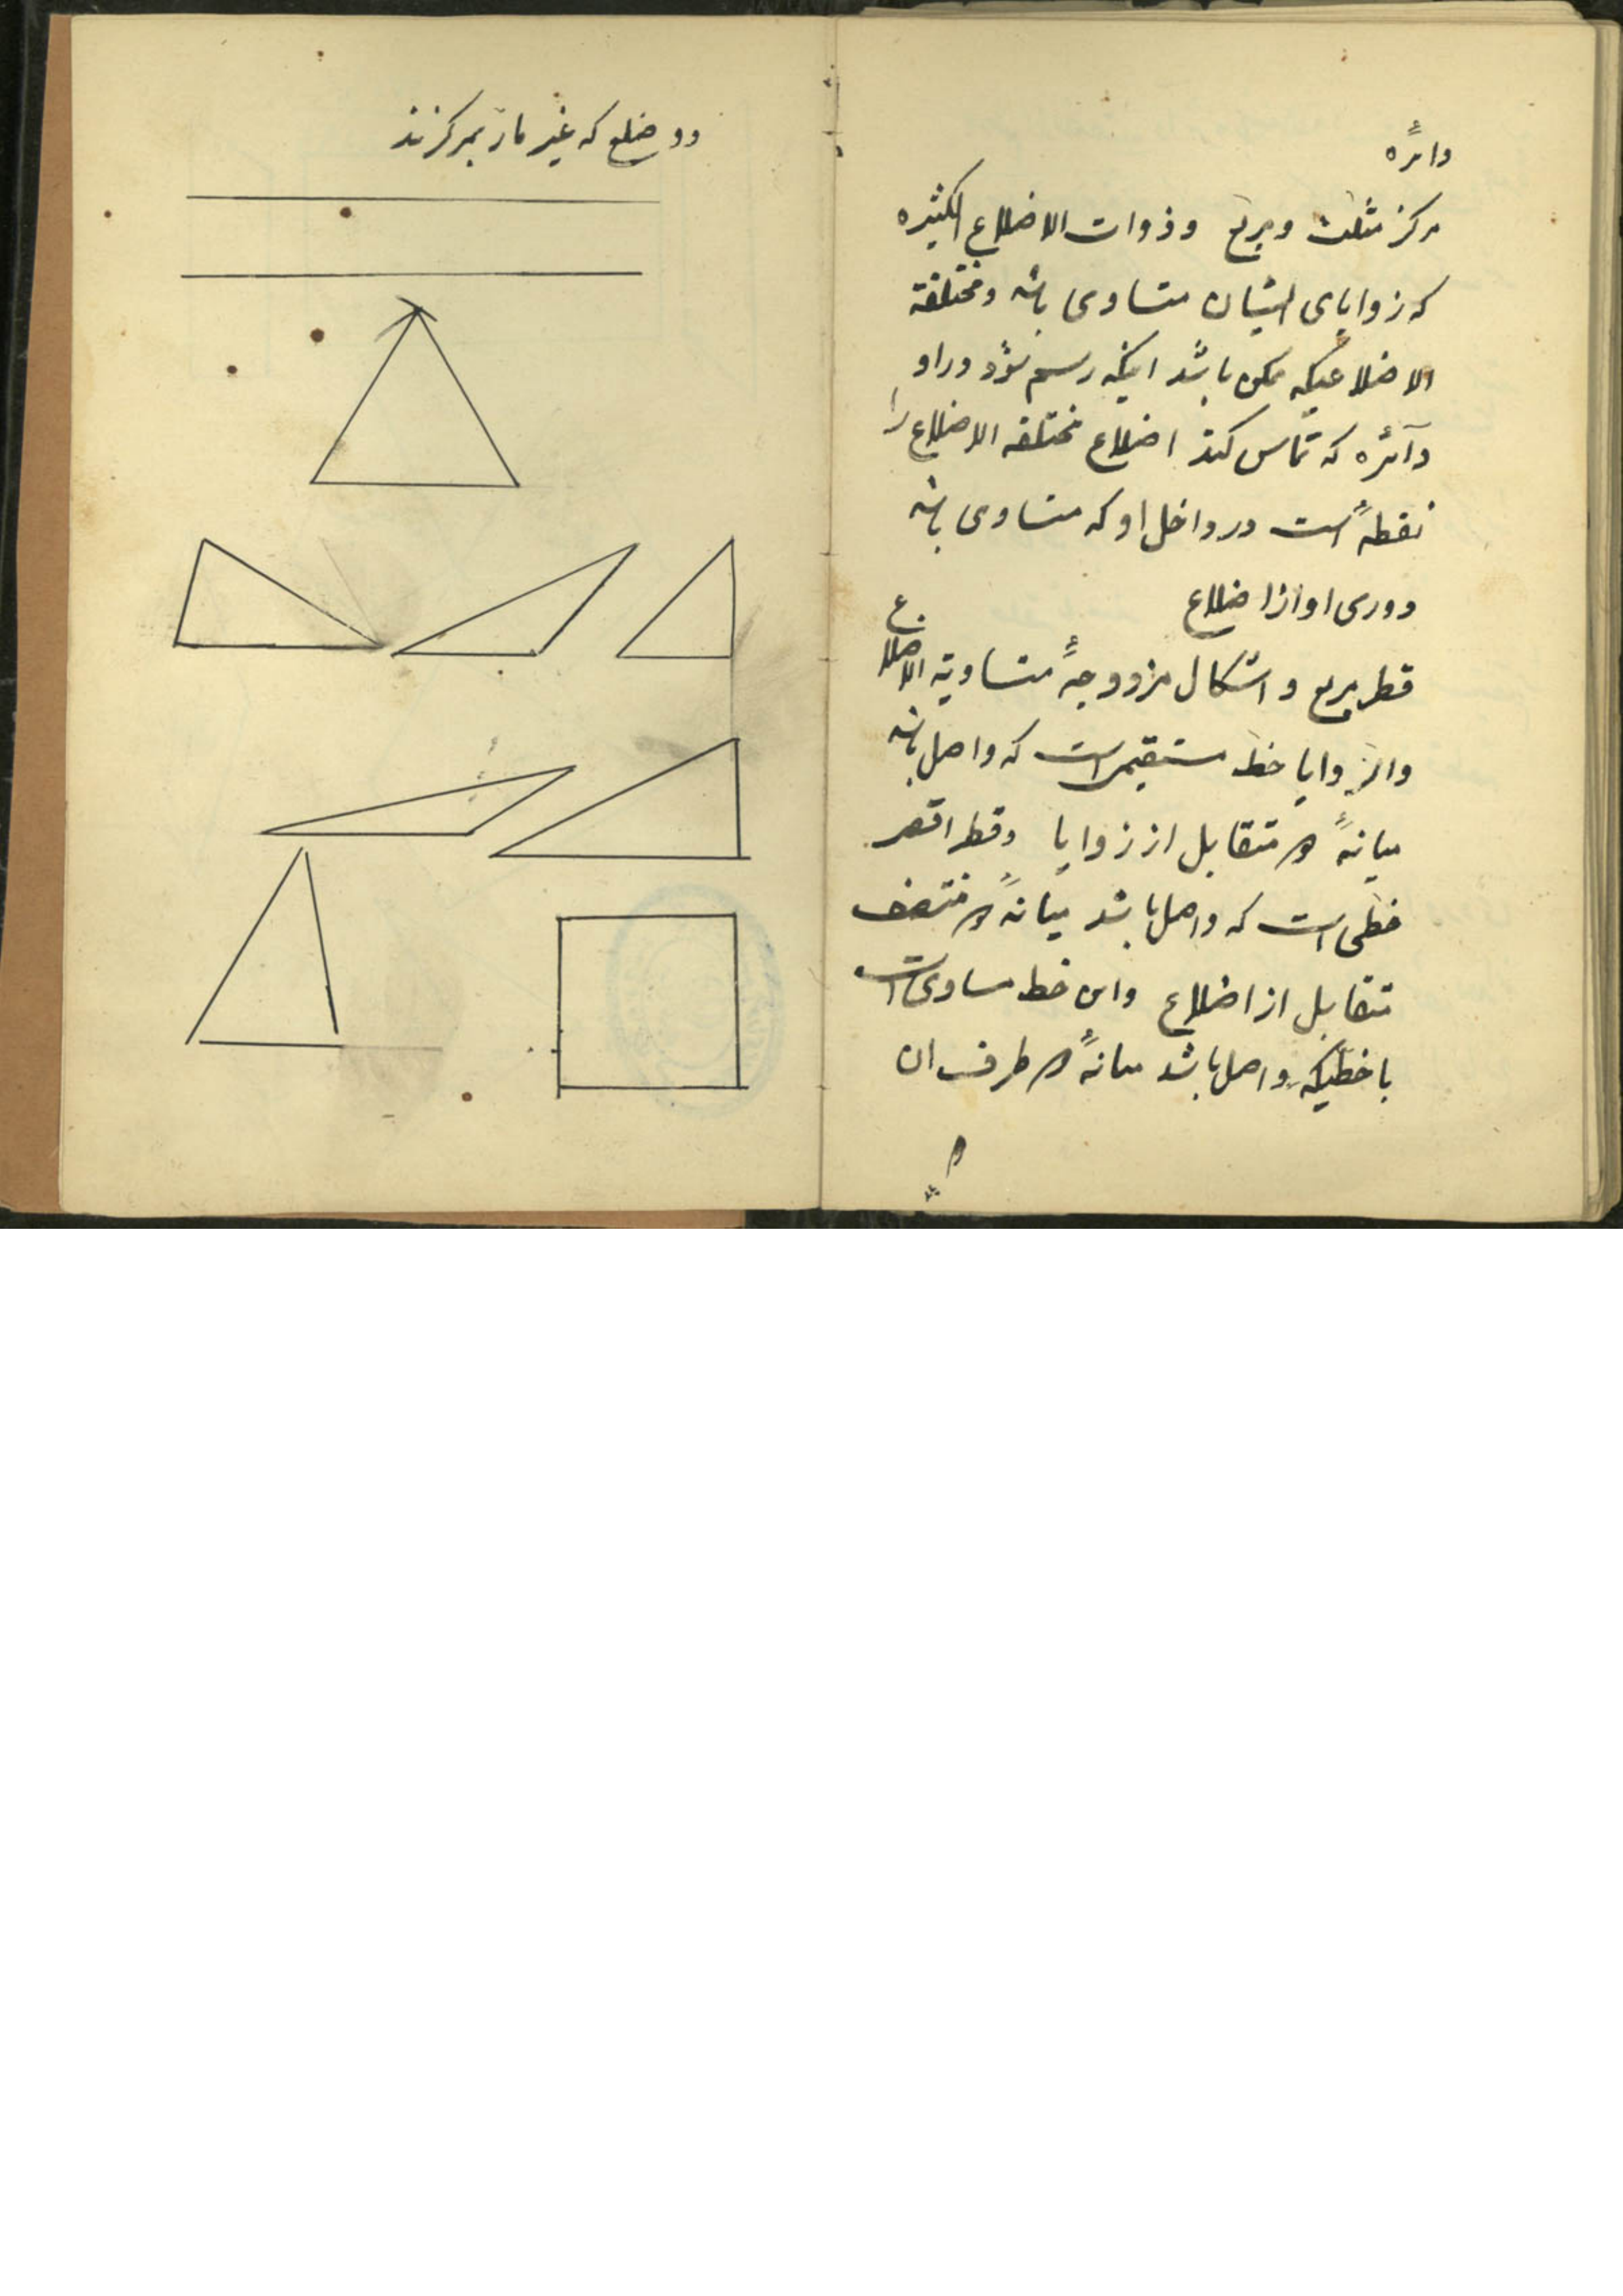 دائرهٔ
مرکز مثلث و مربع و ذوات الاضلاع الکثیره
که زوایای ایشان متساوی باشد و مختلفة
الاضلاعیکه ممکن باشد اینکه رسم شود در او
دآئره که تماس کند اضلاع مختلفه الاضلاع را
نقطهٔ است در داخل او که متساوی باشد
دوری او از اضلاع
قطر مربع و اشکال مزدوجهٔ متساویة الاضلاع
والزوایا خط مستقیمی است که واصل باشد
میانهٔ دو متقابل از زوایا و قطر اقصر
خطی است که واصل باشد میانهٔ دو منتصف
متقابل از اضلاع و این خط مساوی است
با خطیکه واصل باشد میانهٔ دو طرف ان
دو
دو ضلع که غیر مارّ بمرکزند